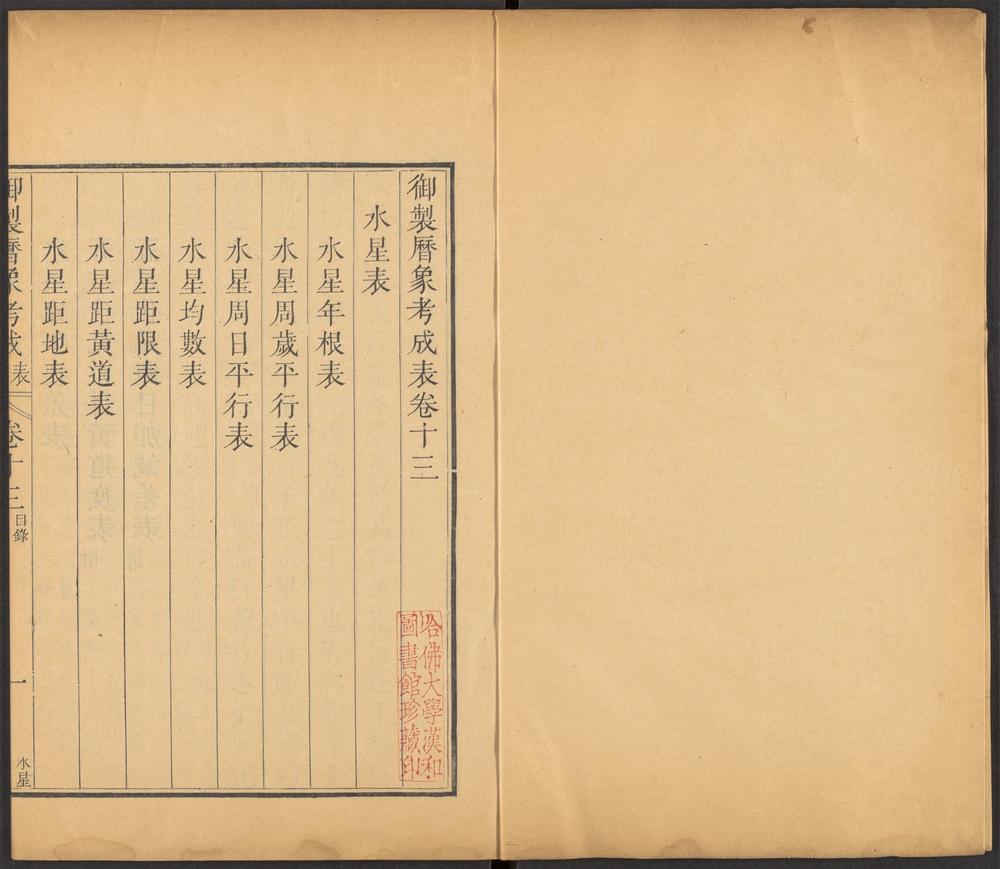 御製曆象考成表卷十三
水星表
水星年根表
水星周歲平行表
水星周日平行表
水星均數表
水星距限表
水星距黃道表
水星距地表
御製曆象考成表
卷十三
目錄
一
水星
哈佛大學漢和
圖書館珍藏印